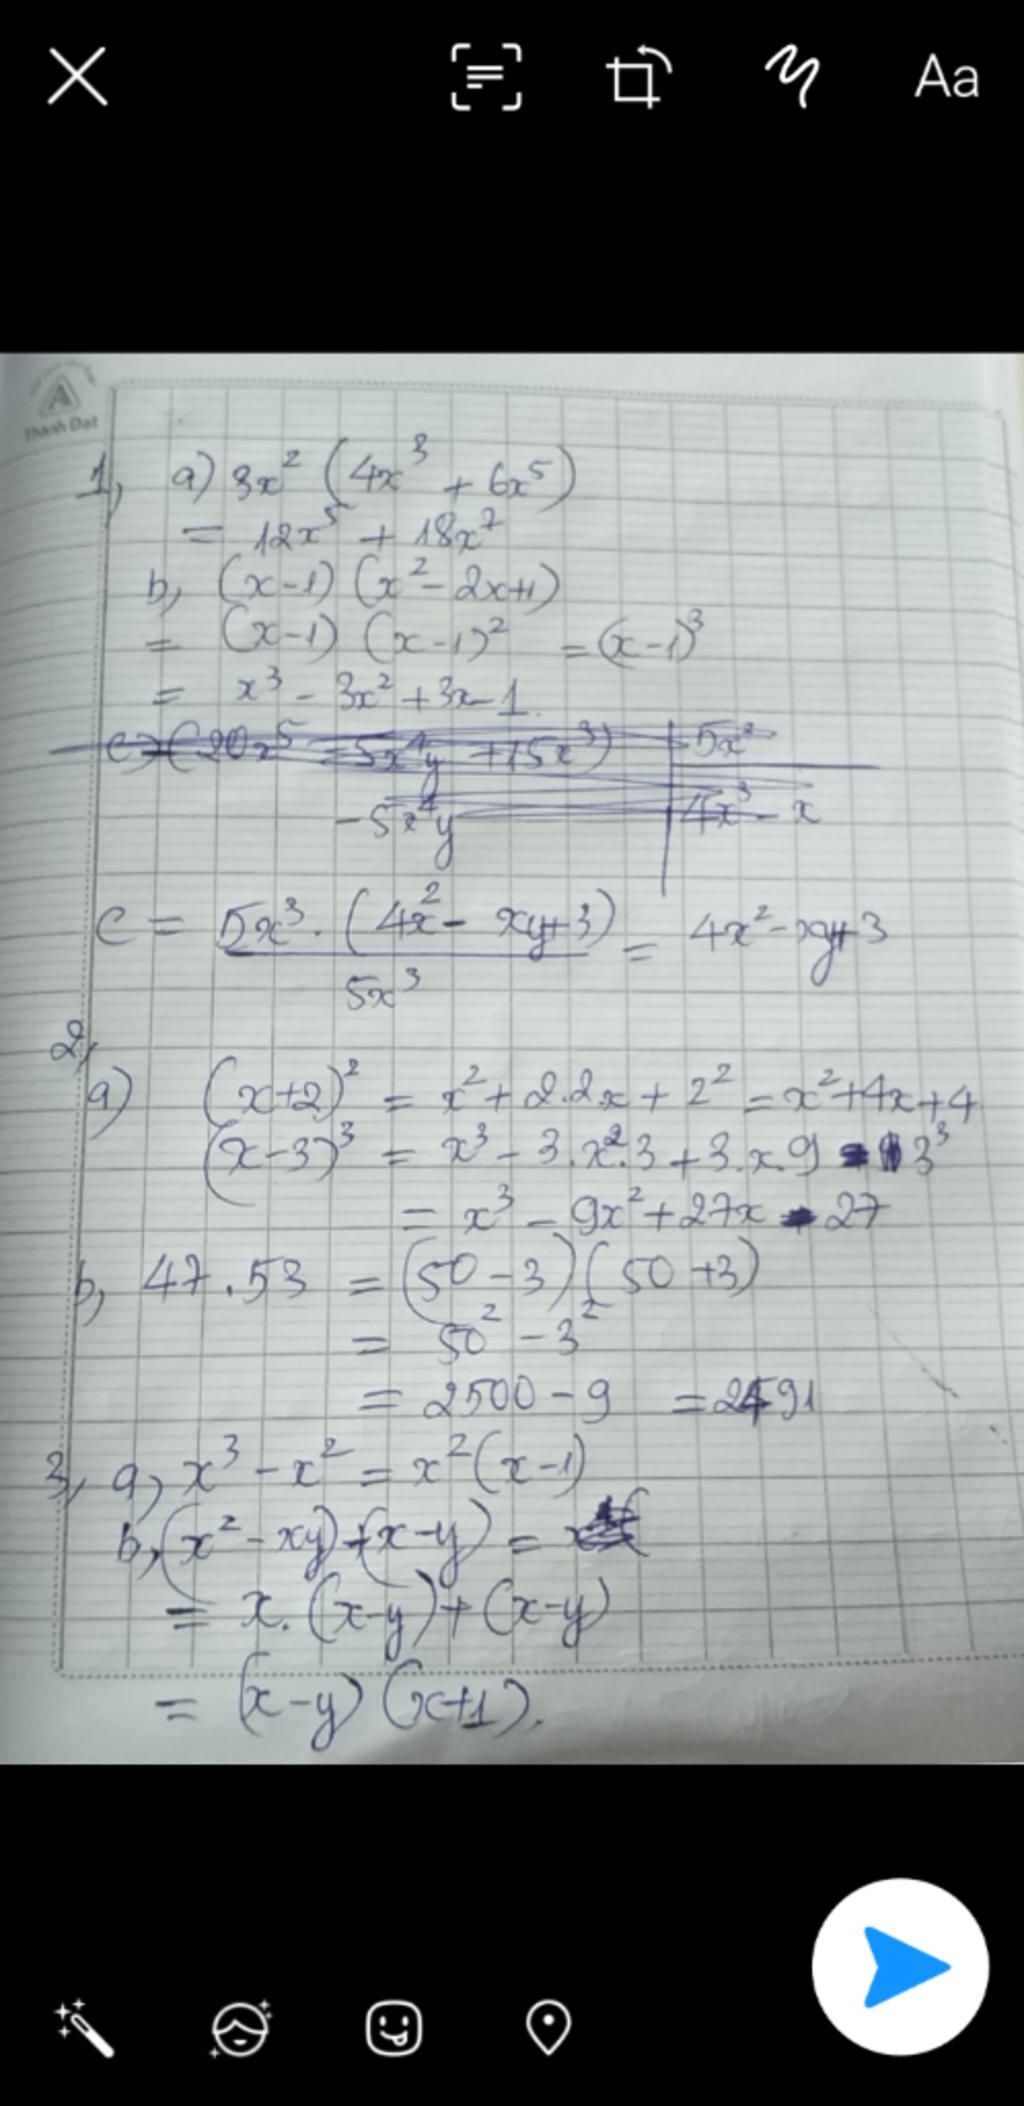 Aa
A
Thành Đạt
1, a) 3x² (4x³ + 6x⁵)
= 12x⁵ + 18x⁷
b, (x-1) (x² - 2x+1)
= (x-1) (x-1)² = (x-1)³
= x³ - 3x² + 3x - 1.
c) (20x⁵ - 5x⁴y + 15x³) 5x²
-5x⁴y 4x³ - x
C = 5x³. (4x² - xy+3) = 4x² - xy+3
5x³
2,
a) (x+2)² = x² + 2.2x + 2² = x²+4x+4
(x-3)³ = x³ - 3.x².3 + 3.x.9 - 3³
= x³ - 9x² + 27x - 27
b, 47.53 = (50-3)(50+3)
= 50² - 3²
= 2500 - 9 = 2491
3, a, x³ - x² = x² (x-1)
b, (x² - xy) + (x-y) =
= x. (x-y) + (x-y)
= (x-y) (x+1).